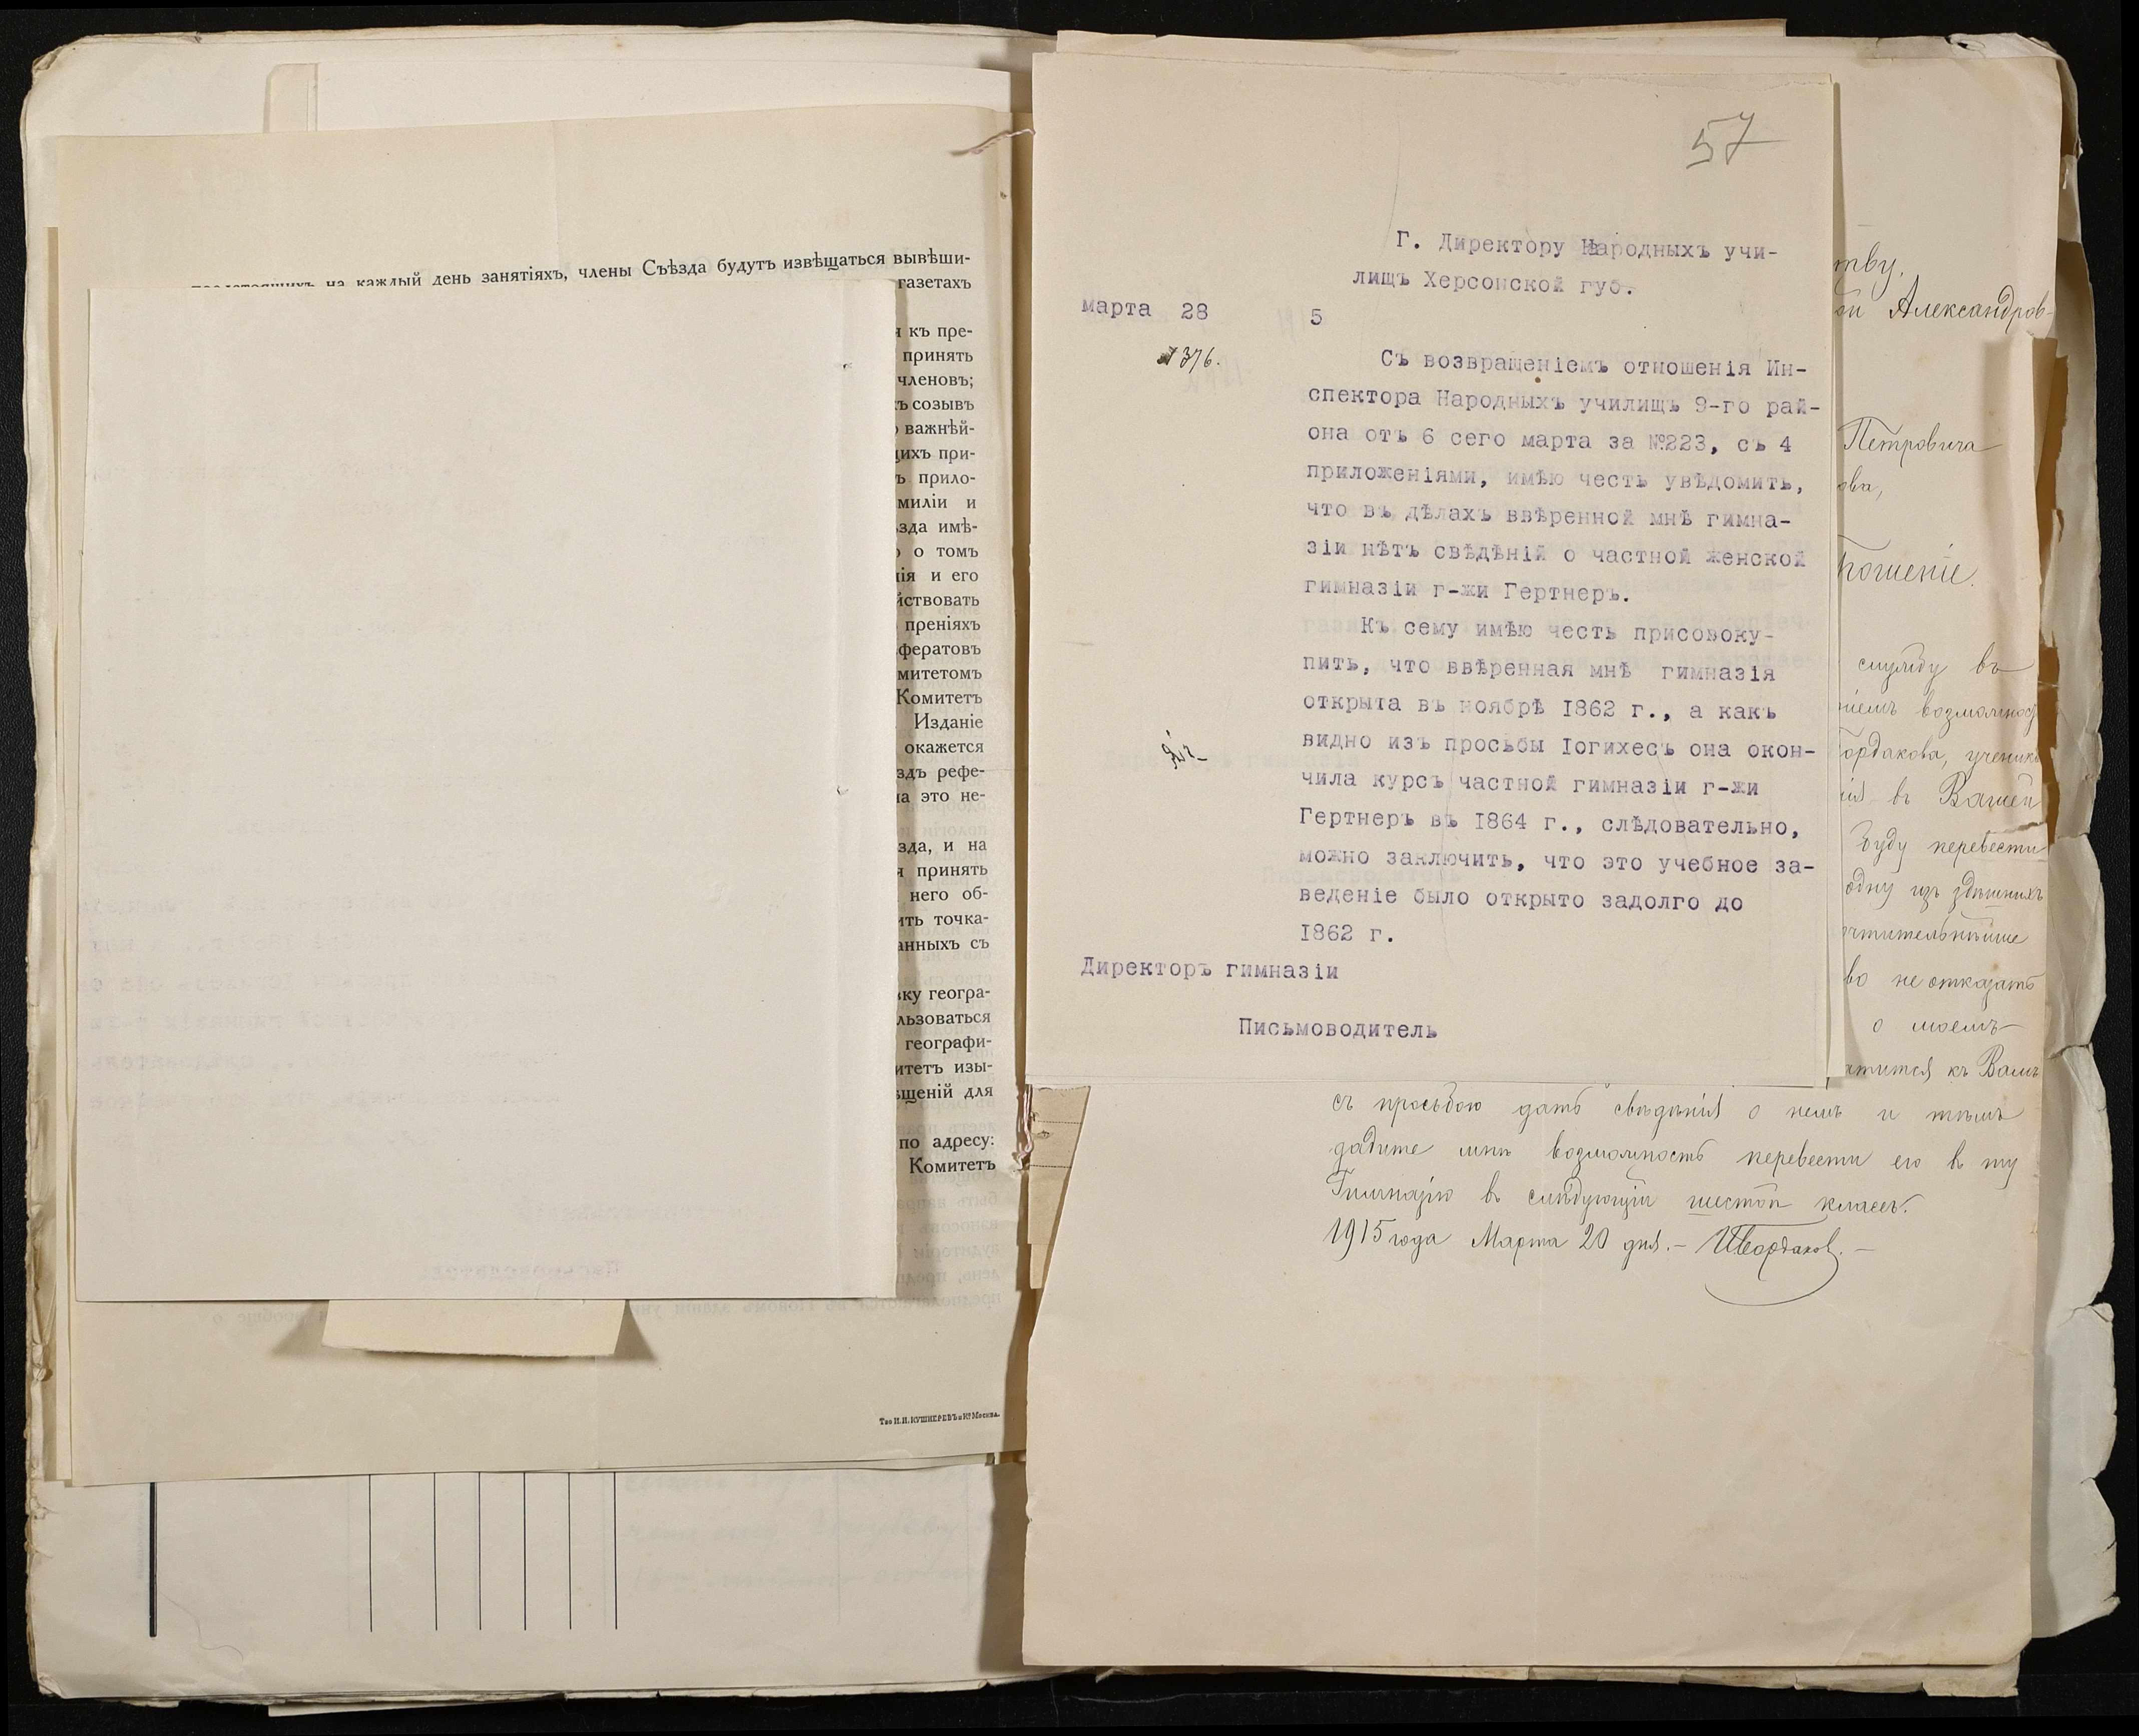 предстоящихъ на каждый день занятіяхъ, члены Съѣзда будутъ извѣщаться вывѣши-
газетахъ
къ пре-
принять
членовъ;
созывъ
важнѣй-
при-
прило-
и
имѣ-
о томъ
и его
преніяхъ
Комитетъ
Изданіе
окажется
рефе-
это не-
и на
принять
него об-
точка-
съ
геогра-
географи-
изы-
для
по адресу:
Комитетъ
Т-во И. Н. КУШНЕРЕВЪ и К° Москва.
57
Г. Директору Народныхъ учи-
лищъ Херсонской губ.
марта 28 5
№ 376.
Съ возвращеніемъ отношенія Ин-
спектора Народныхъ училищъ 9-го рай-
она отъ 6 сего марта за №223, съ 4
приложеніями, имѣю честь увѣдомить,
что въ дѣлахъ ввѣренной мнѣ гимна-
зіи нѣтъ свѣдѣній о частной женской
гимназіи г-жи Гертнеръ.
Къ сему имѣю честь присовоку-
пить, что ввѣренная мнѣ гимназія
открыта въ ноябрѣ 1862 г., а какъ
видно изъ просьбы Іогихесъ она окон-
чила курсъ частной гимназіи г-жи
Гертнеръ въ 1864 г., слѣдовательно,
можно заключить, что это учебное за-
веденіе было открыто задолго до
1862 г.
Директоръ гимназіи
Письмоводитель
Александров-
Петровича
службу въ
ученика
въ Вашей
буду перевести
одну изъ здѣшнихъ
не отказать
о моемъ
къ Вамъ
съ просьбою дать свѣдѣнія о немъ и тѣмъ
дадите мнѣ возможность перевести его въ ту
Гимназію въ слѣдующій шестой классъ.
1915 года Марта 20 дня.-